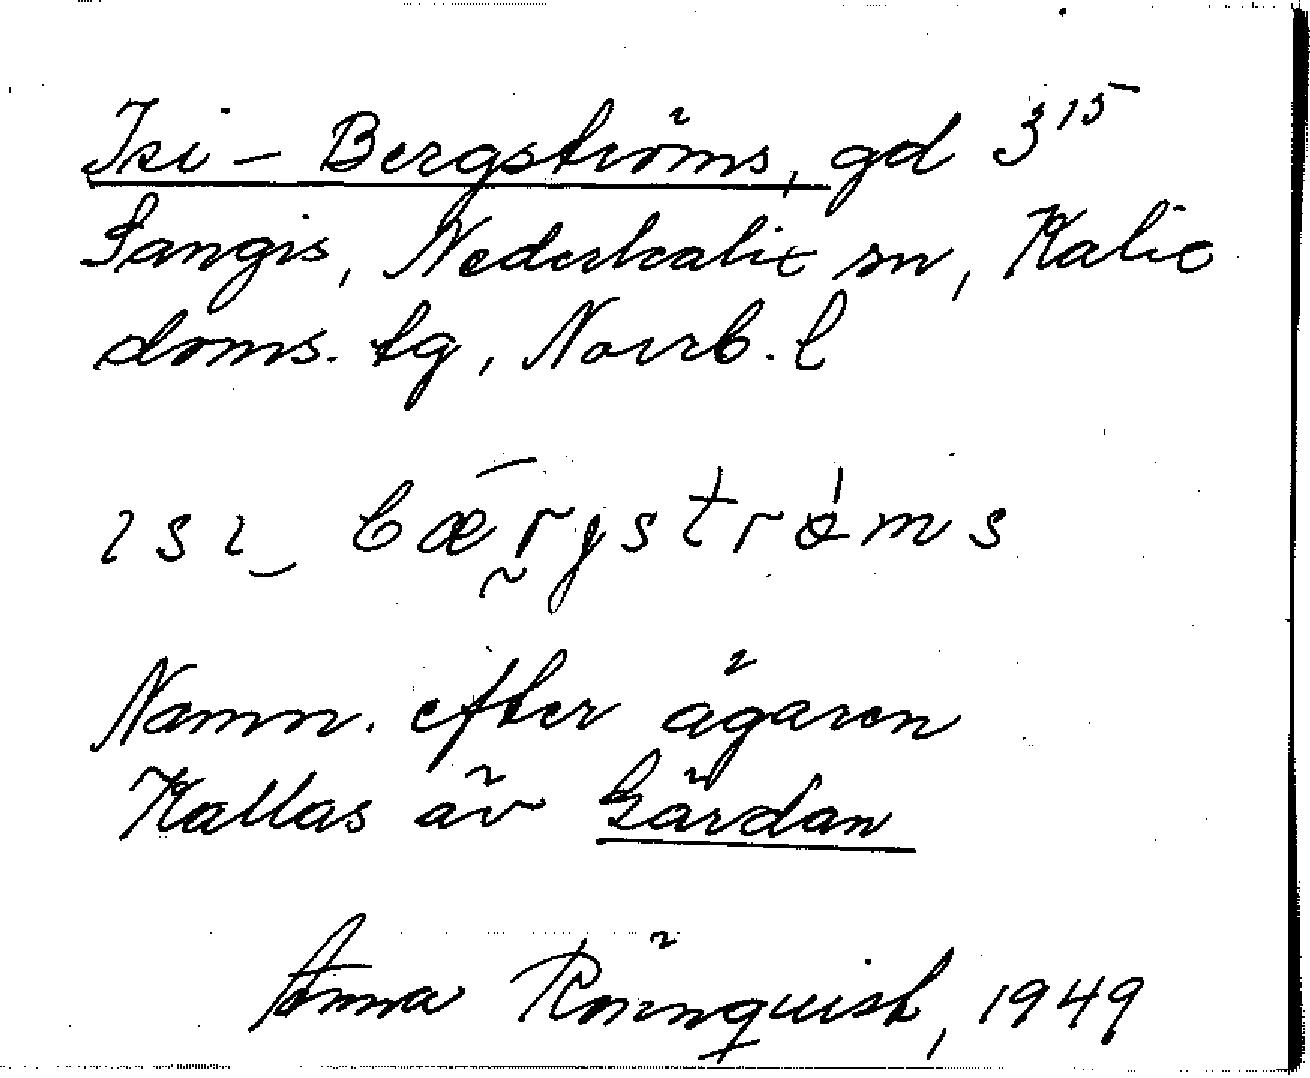 Isi-Bergströms, gd 3¹⁵
Sangis, Nederkalix sn, Kalix
doms. tg, Norrb. l
ɩsɩ‿ bǣr̰gstrøms
Namn. efter ägaren
Kallas äv Gärdan
Anna Rönnquist, 1949